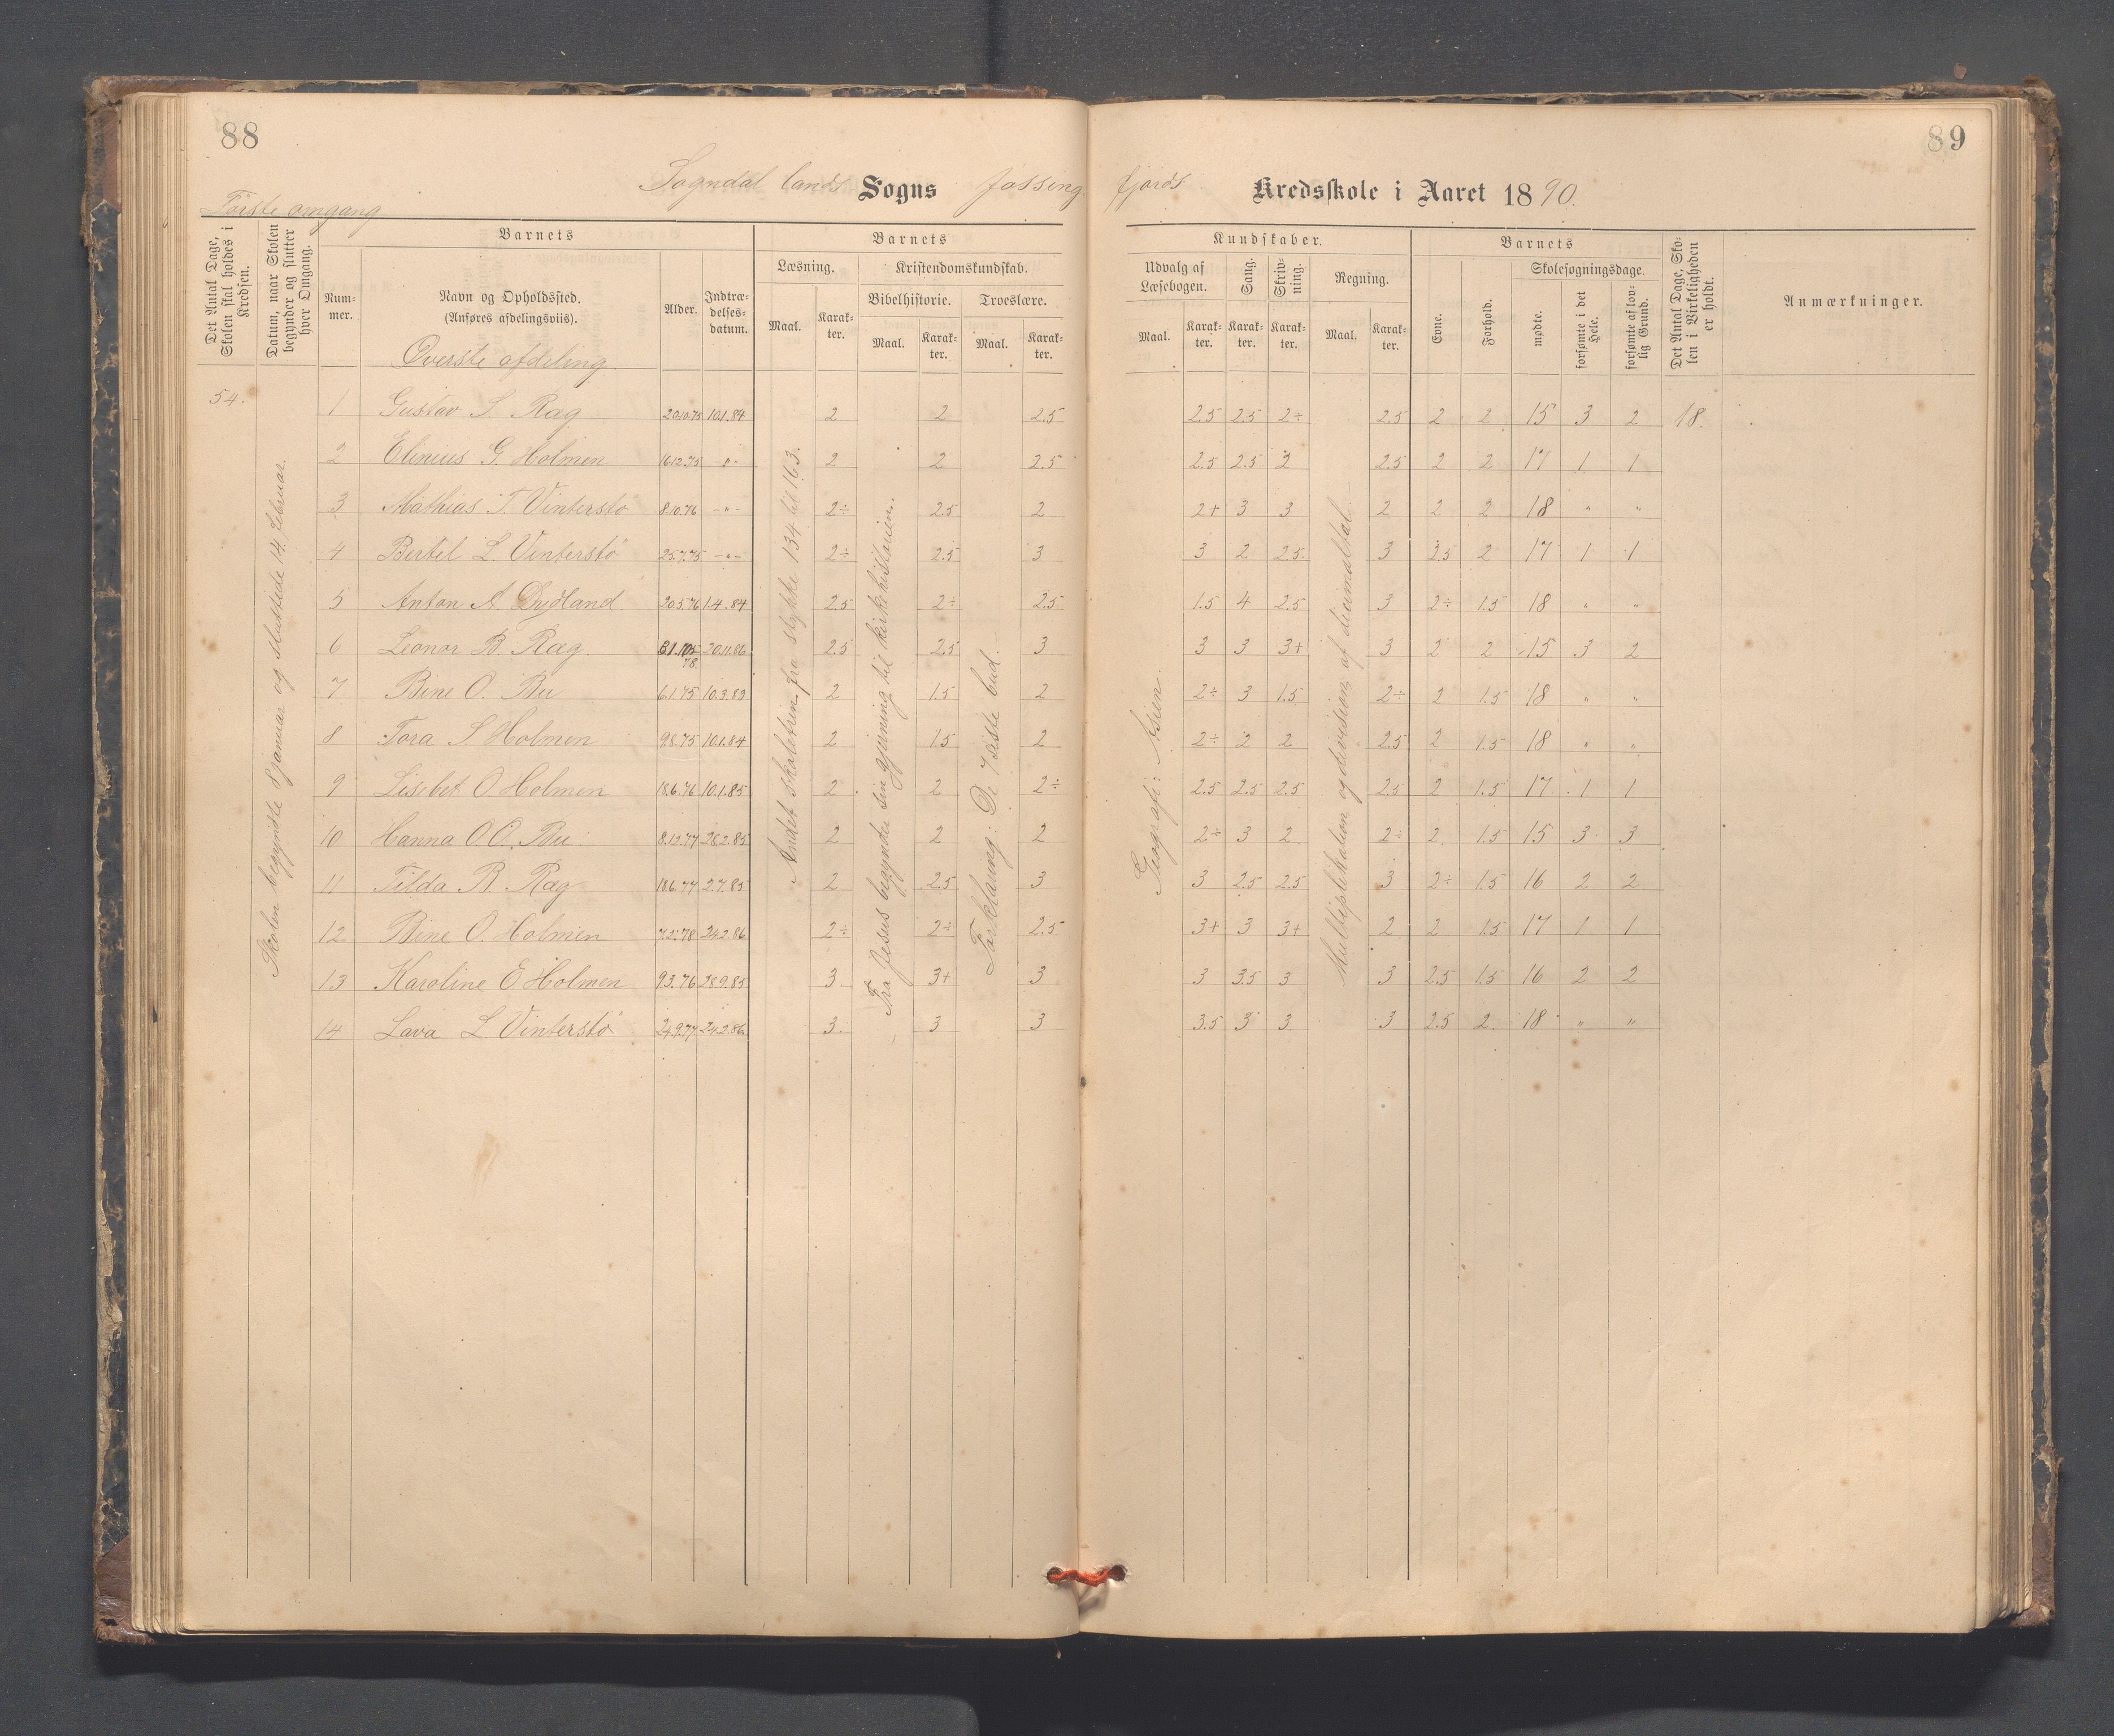 88
89
Sogndal lands Sogns Jøssing fjords Kredsskole i Aaret 1890.
Første omgang
Det Antal Dage, Skolen skal holdes i Kredsen.
Datum, naar Skolen begynder og slutter hver Omgang.
Barnets
Num-
mer.
Navn og Opholdssted.
(Anføres afdelingsviis).
Alder.
Indtræ-
delses-
datum.
Barnets
Læsning.
Maal.
Karak-
ter.
Kristendomskundskab.
Bibelhistorie.
Maal.
Karak-
ter.
Troeslære.
Maal.
Karak-
ter.
Kundskaber.
Udvalg af
Læsebogen.
Maal.
Karak-
ter.
Gang.
Karak-
ter.
Skriv-
ning.
Karak-
ter.
Regning.
Maal.
Karak-
ter.
Barnets
Evne.
Forhold.
Skolesøgningsdage.
mødte.
forsømte i det Hele.
forsømte af lov-
lig Grund.
Det Antal Dage, Sko-
len i Virkeligheden
er holdt.
Anmærkninger.
Øverste afdeling
54.
Skolen begyndte 8 januar og sluttede 14 februar.
Andet skoletrin fra stykke 134 til 163.
Fra Jesus begynder sin gjerning til kirkehistorien.
Forklaring: De 7 siste bud.
Geografi: Asien.
Multiplikation og division af decimaltal.
1 Gustav S. Rag 20.10.75 10.1.84 2 2 2.5 2.5 2.5 2÷ 2.5 2 2 15 3 2 18.
2 Elinius G. Holmen 16.12.75 -"- 2 2 2.5 2.5 2.5 2 2.5 2 2 17 1 1
3 Mathias T. Vinterstø 8.10.76 -"- 2÷ 2.5 2 2+ 3 3 2 2 2 18 " "
4 Bertel L. Vinterstø 25.7.75 -"- 2÷ 2.5 3 3 2 2.5 3 2.5 2 17 1 1
5 Anton A. Dydland 20.5.76 1.4.84 2.5 2÷ 2.5 1.5 4 2.5 3 2÷ 1.5 18 " "
6 Leonor B. Rag 78. 20.11.86 2.5 2.5 3 3 3 3+ 3 2 2 15 3 2
7 Bine O. Bu 6.1.75 10.3.83 2 1.5 2 2÷ 3 1.5 2÷ 2 1.5 18 " "
8 Tora S. Holmen 9.8.75 10.1.84 2 1.5 2 2÷ 2 2 2.5 2 1.5 18 " "
9 Lisebet O Holmen 18.6.76 10.1.85 2 2 2÷ 2.5 2.5 2.5 2.5 2 1.5 17 1 1
10 Hanna O.O. Bu 8.12.77 28.2.85 2 2 2 2÷ 3 2 2÷ 2 1.5 15 3 3
11 Tilda R. Rag 18.6.77 2.7.85 2 2.5 3 3 2.5 2.5 3 2÷ 1.5 16 2 2
12 Bine O. Holmen 7.2.78 24.2.86 2÷ 2÷ 2.5 3+ 3 3+ 2 2 1.5 17 1 1
13 Karoline E Holmen 9.3.76 28.9.85 3 3+ 3 3 3.5 3 3 2.5 1.5 16 2 2
14 Lava L. Vinterstø 24.9.77 24.2.86 3. 3 3 3.5 3 3 3 2.5 2 18 " "